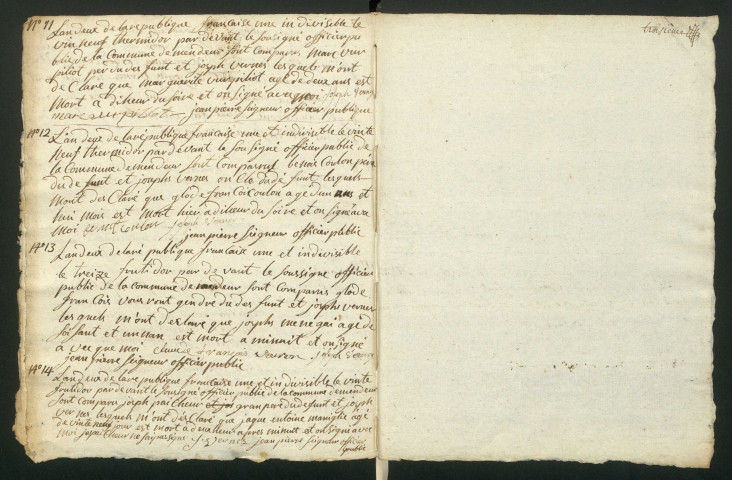 N° 11 L'an deux de la republique francaise une indivisible le
vin neuf thermidor par devant le sousigné officier pu
blic de la Commune de mendeur sont comparus marc vuir
pillot per du de funt et joseph vernes lesquels m'ont
de Claré que marguerite vuirpillot agé de deux ans est
mort a dih eur du soire et on signé avec moi joseph vernes
marc vuirpillot jean pierre seigneur officier publique
N° 12 L'an deux de la republique francaise une et indivisible le vinte
neuf thermidor par devant le sousigné officier public de
la Commune de mendeur sont comparus benoit Coulon peire
du de funt et joseph vernes on Cle du dé funt lesquels
m'ont des Claré que glode francois Coulon agé d'un ans et
hui mois est mort hier a dih eur du soire et on signé avec
moi benoit Coulon joseph vernes
jean pierre seigneur officier publie
N° 13 L'an deux de la ré publique francaise une et indivisible
le treize frutidor par de vant le soussigné officier
public de la commune de mendeur sont comparus glode
francois vouront gendre du des funt et joseph vernes
les quels m'ont des claré que joseph menegai agé de
soi sant et un nan est mort a minuit et on signé
a vec que moi Claude francois joseph vernes
jean pierre seigneur officier publie
N° 14 L'an deux de la republique francaise une et indivisible le vinte
frutidor par de vant le sousigné officier public de la commune de mendeur
sont comparu joseph paicheur gran per du de funt et joseph
vernes lesquels m'ont des Claré que jaque antoine maniglie agé
de vinte neuf jour est mort a deux heur apres minuit et on signé avec
moi joseph paicheur ne sai pas signé js vernes jean pierre seigneur officier
publie
troisieme